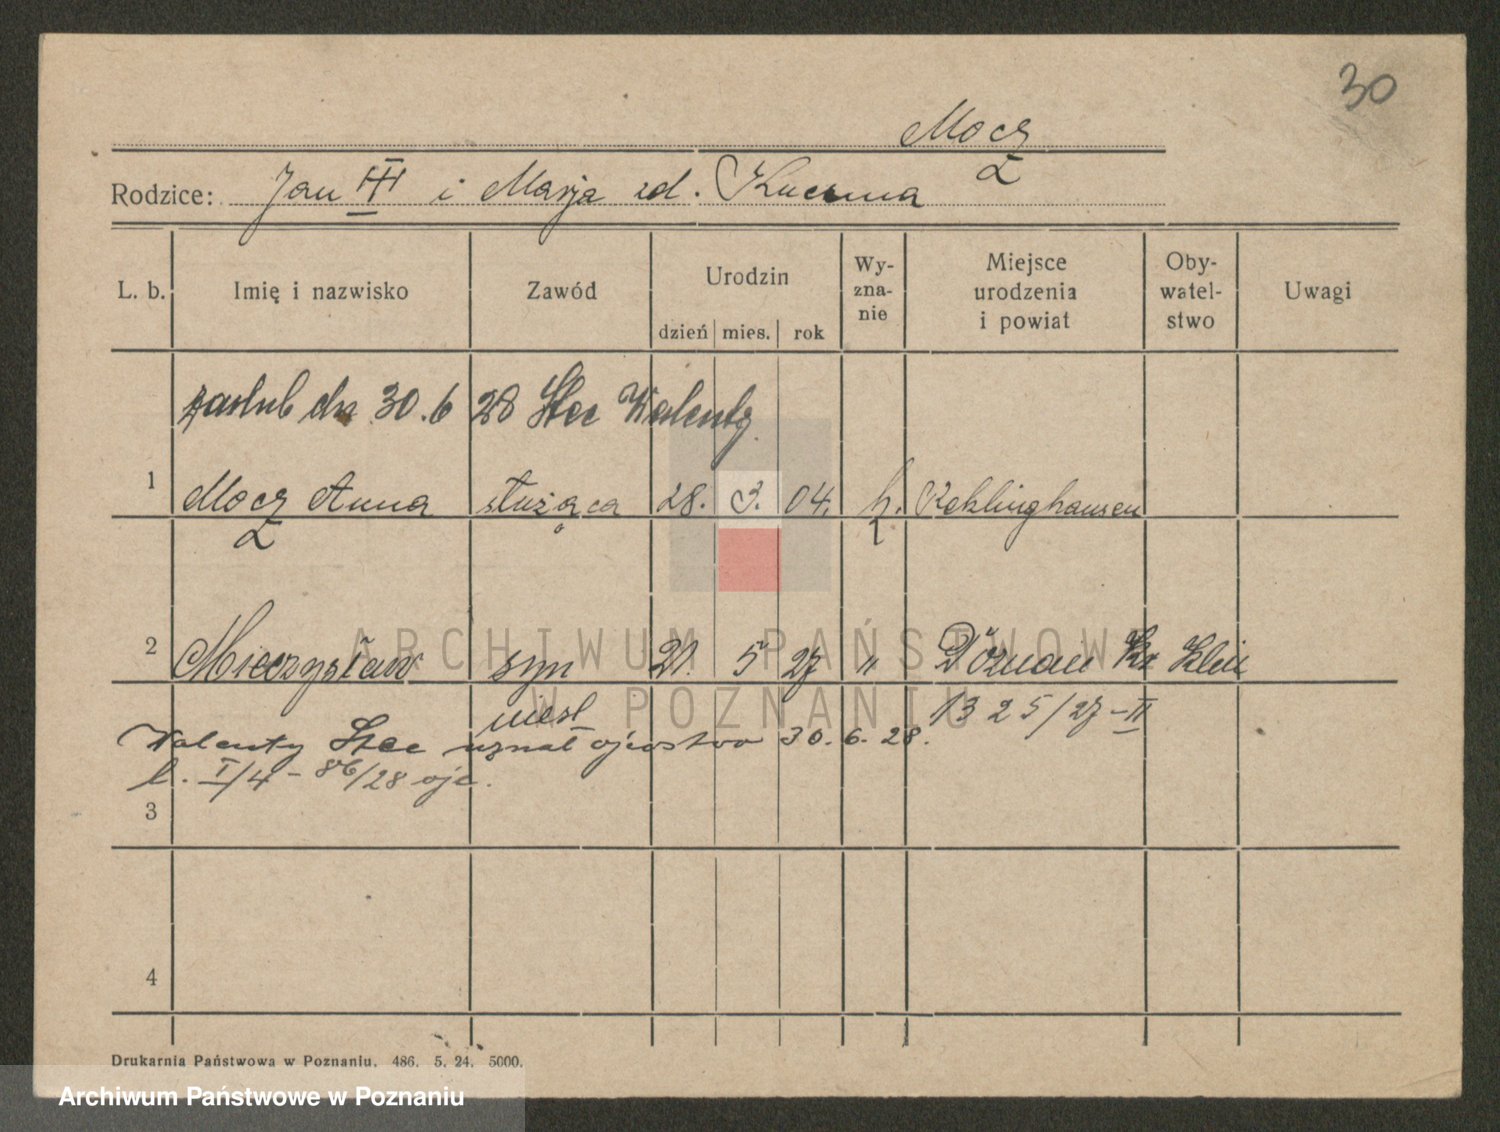 30
Mocz
Rodzice: Jan III i Marja zd. Kuczma
L. b. Imię i nazwisko Zawód Urodzin dzień mies. rok Wy-zna-nie Miejsce urodzenia i powiat Oby-watel-stwo Uwagi
zaślub dn 30.6 28 Stec Walenty
1 Mocz Anna służąca 28. 3. 04. k. Reklinghausen
2 Mieczysław syn 21. 5 27 " Poznań
nieśl 1325/27-II
Walenty Stec uznał ojcostwo 30.6.28.
l. I/4-86/28 ojc.
3
4
Drukarnia Państwowa w Poznaniu. 486. 5. 24. 5000.
ARCHIWUM PAŃSTWOWE
W POZNANIU
Archiwum Państwowe w Poznaniu